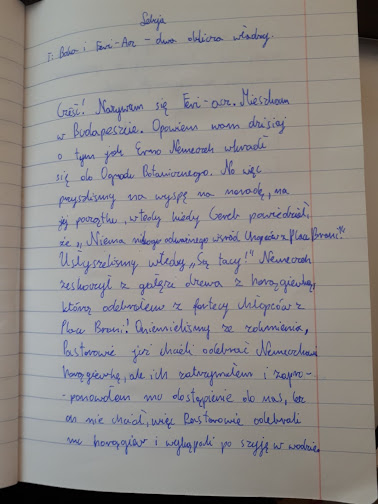 Lekcja
T: Boka i Feri-Acz - dwa oblicza władzy.
Cześć! Nazywam się Feri-acz. Mieszkam
w Budapeszcie. Opowiem wam dzisiaj
o tym jak Erno Nemeczek wkradł
się do Ogrodu Botanicznego. No więc
przyszliśmy na wyspę na naradę, na
jej początku, wtedy kiedy Gereb powiedział,
że „Niema nikogo odważnego wśród chłopców z Placu Broni!"
Usłyszeliśmy wtedy „Są tacy!" Nemeczek
zeskoczył z gałęzi drzewa z chorągiewką,
którą odebrałem z fortecy chłopców z
Placu Broni! Oniemieliśmy ze zdumienia,
Pastorowie już chcieli odebrać Nemeczkowi
chorągiewkę, ale ich zatrzymałem i zapro-
-ponowałem mu dostąpienie do nas, lecz
on nie chciał, więc Pastorowie odebrali
mu chorągiew i wykąpali po szyję w wodzie.